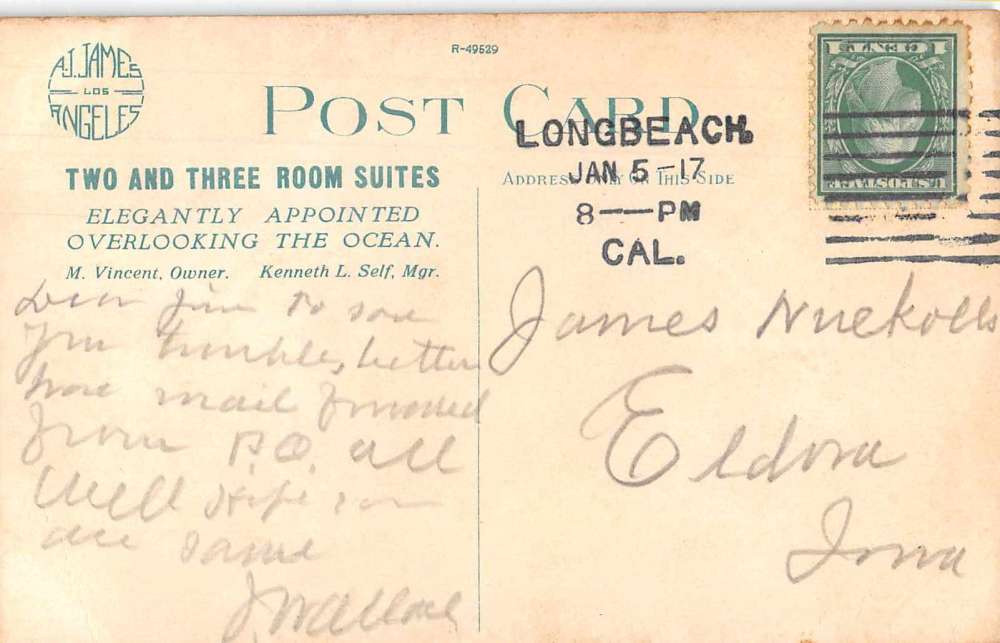 A.J. JAMES
LOS
ANGELES
R-49529
POST CARD
TWO AND THREE ROOM SUITES
ELEGANTLY APPOINTED
OVERLOOKING THE OCEAN.
M. Vincent, Owner. Kenneth L. Self, Mgr.
ADDRESS ONLY ON THIS SIDE
LONGBEACH,
JAN 5-17
8—PM
CAL.
1 CENT 1
U.S. POSTAGE
Dear Jim to save
you trouble, better
have mail forwarded
from P.O. all
well hope you
are same
J Wallace
James Nuckolls
Eldora
Iowa